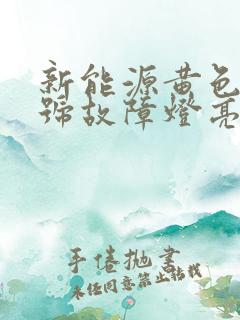 新能源黄色
號故障燈亮
手倦抛書
未经同意禁止转载